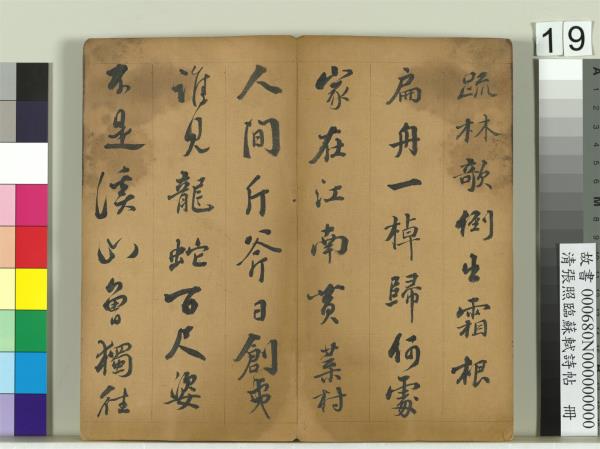 疏林欹倒出霜根
扁舟一棹歸何處
家在江南黃葉村
人間斤斧日創夷
誰見龍蛇百尺姿
不是溪山曾獨往
19
故書 000680N000000000
清張照臨蘇軾詩帖 冊